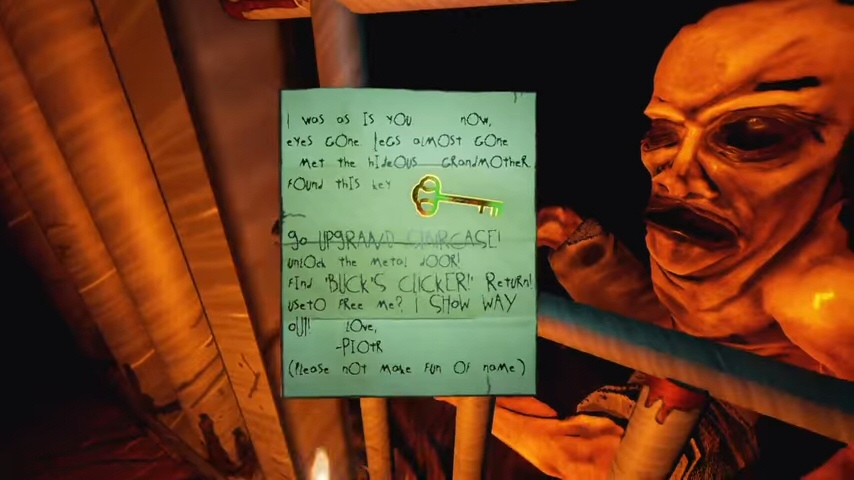 I was as IS YOU nOW,
eYes GOne. legs alMOST GOne
Met the hIdeOUS GRandMOtheR
FOund thIS key
go UPGRAND STAIRCASE!
unlOck the MetaL dOOR!
FInd "BUCK'S CLICKER!" ReturN!
useto FRee Me? I SHOW WAY
OUT! lOve,
-PIOtR
(Please nOt Make Fun OF name)